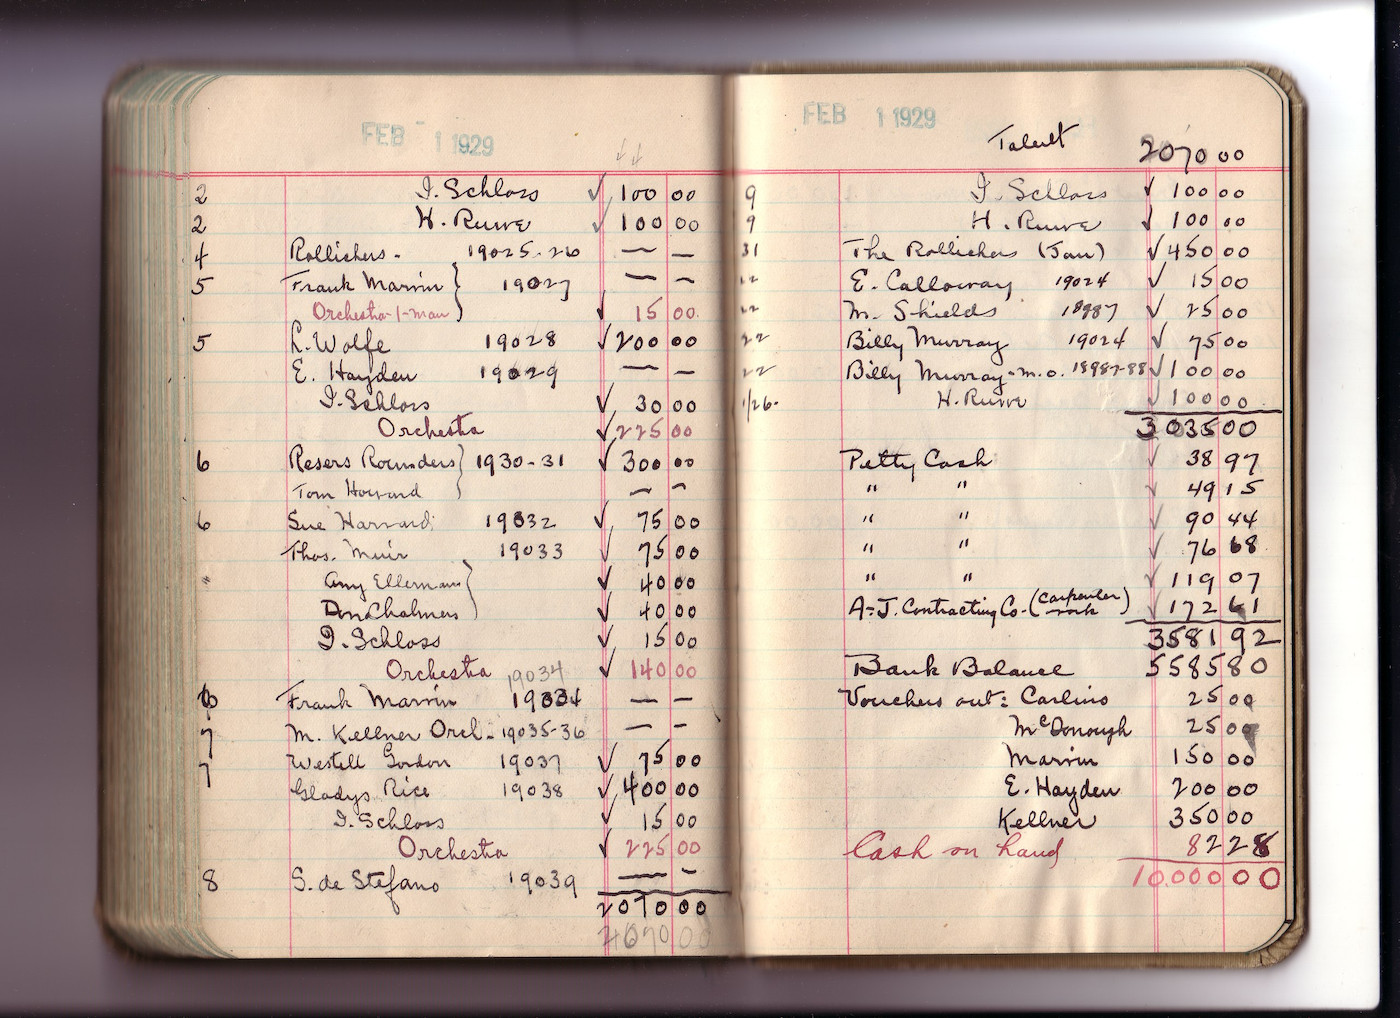 FEB - 1 1929
2 I. Schloss ✓ 100 00
2 H. Ruwe ✓ 100 00
4 Rollickers - 19025-26 — —
5 Frank Marvin } 19027 — —
Orchestra-1-man ✓ 15 00
5 L. Wolfe 19028 ✓ 200 00
E. Hayden 19029 — —
I. Schloss ✓ 30 00
Orchestra ✓ 225 00
6 Resers Rounders } 1930-31 ✓ 300 00
Tom Howard — —
6 Sue Harvard 19032 ✓ 75 00
Thos. Muir 19033 ✓ 75 00
" Amy Ellerman } ✓ 40 00
Don Chalmers ✓ 40 00
I. Schloss ✓ 15 00
Orchestra 19034 ✓ 140 00
6 Frank Marvin 19034 — —
7 M. Kellner Orch. - 19035-36 — —
7 Westell Gordon 19037 ✓ 75 00
Gladys Rice 19038 ✓ 400 00
I. Schloss ✓ 15 00
Orchestra ✓ 225 00
8 S. de Stefano 19039 — —
2070 00
00
FEB 1 1929
Talent 2070 00
9 I. Schloss ✓ 100 00
9 H. Ruwe ✓ 100 00
31 The Rollickers (Jan) ✓ 450 00
22 E. Calloway 19024 ✓ 15 00
22 M. Shields 18987 ✓ 25 00
22 Billy Murray 19024 ✓ 75 00
22 Billy Murray - M.O. 18987-88 ✓ 100 00
1/26- H. Ruwe ✓ 100 00
3035 00
Petty Cash ✓ 38 97
" " ✓ 49 15
" " ✓ 90 44
" " ✓ 76 68
" " ✓ 119 07
A-J. Contracting Co. (Carpenter work) ✓ 172 61
3581 92
Bank Balance 5585 80
Vouchers out: Carlino 25 00
McDonough 25 00
Marvin 150 00
E. Hayden 200 00
Kellner 350 00
Cash on hand 82 28
10.000 00